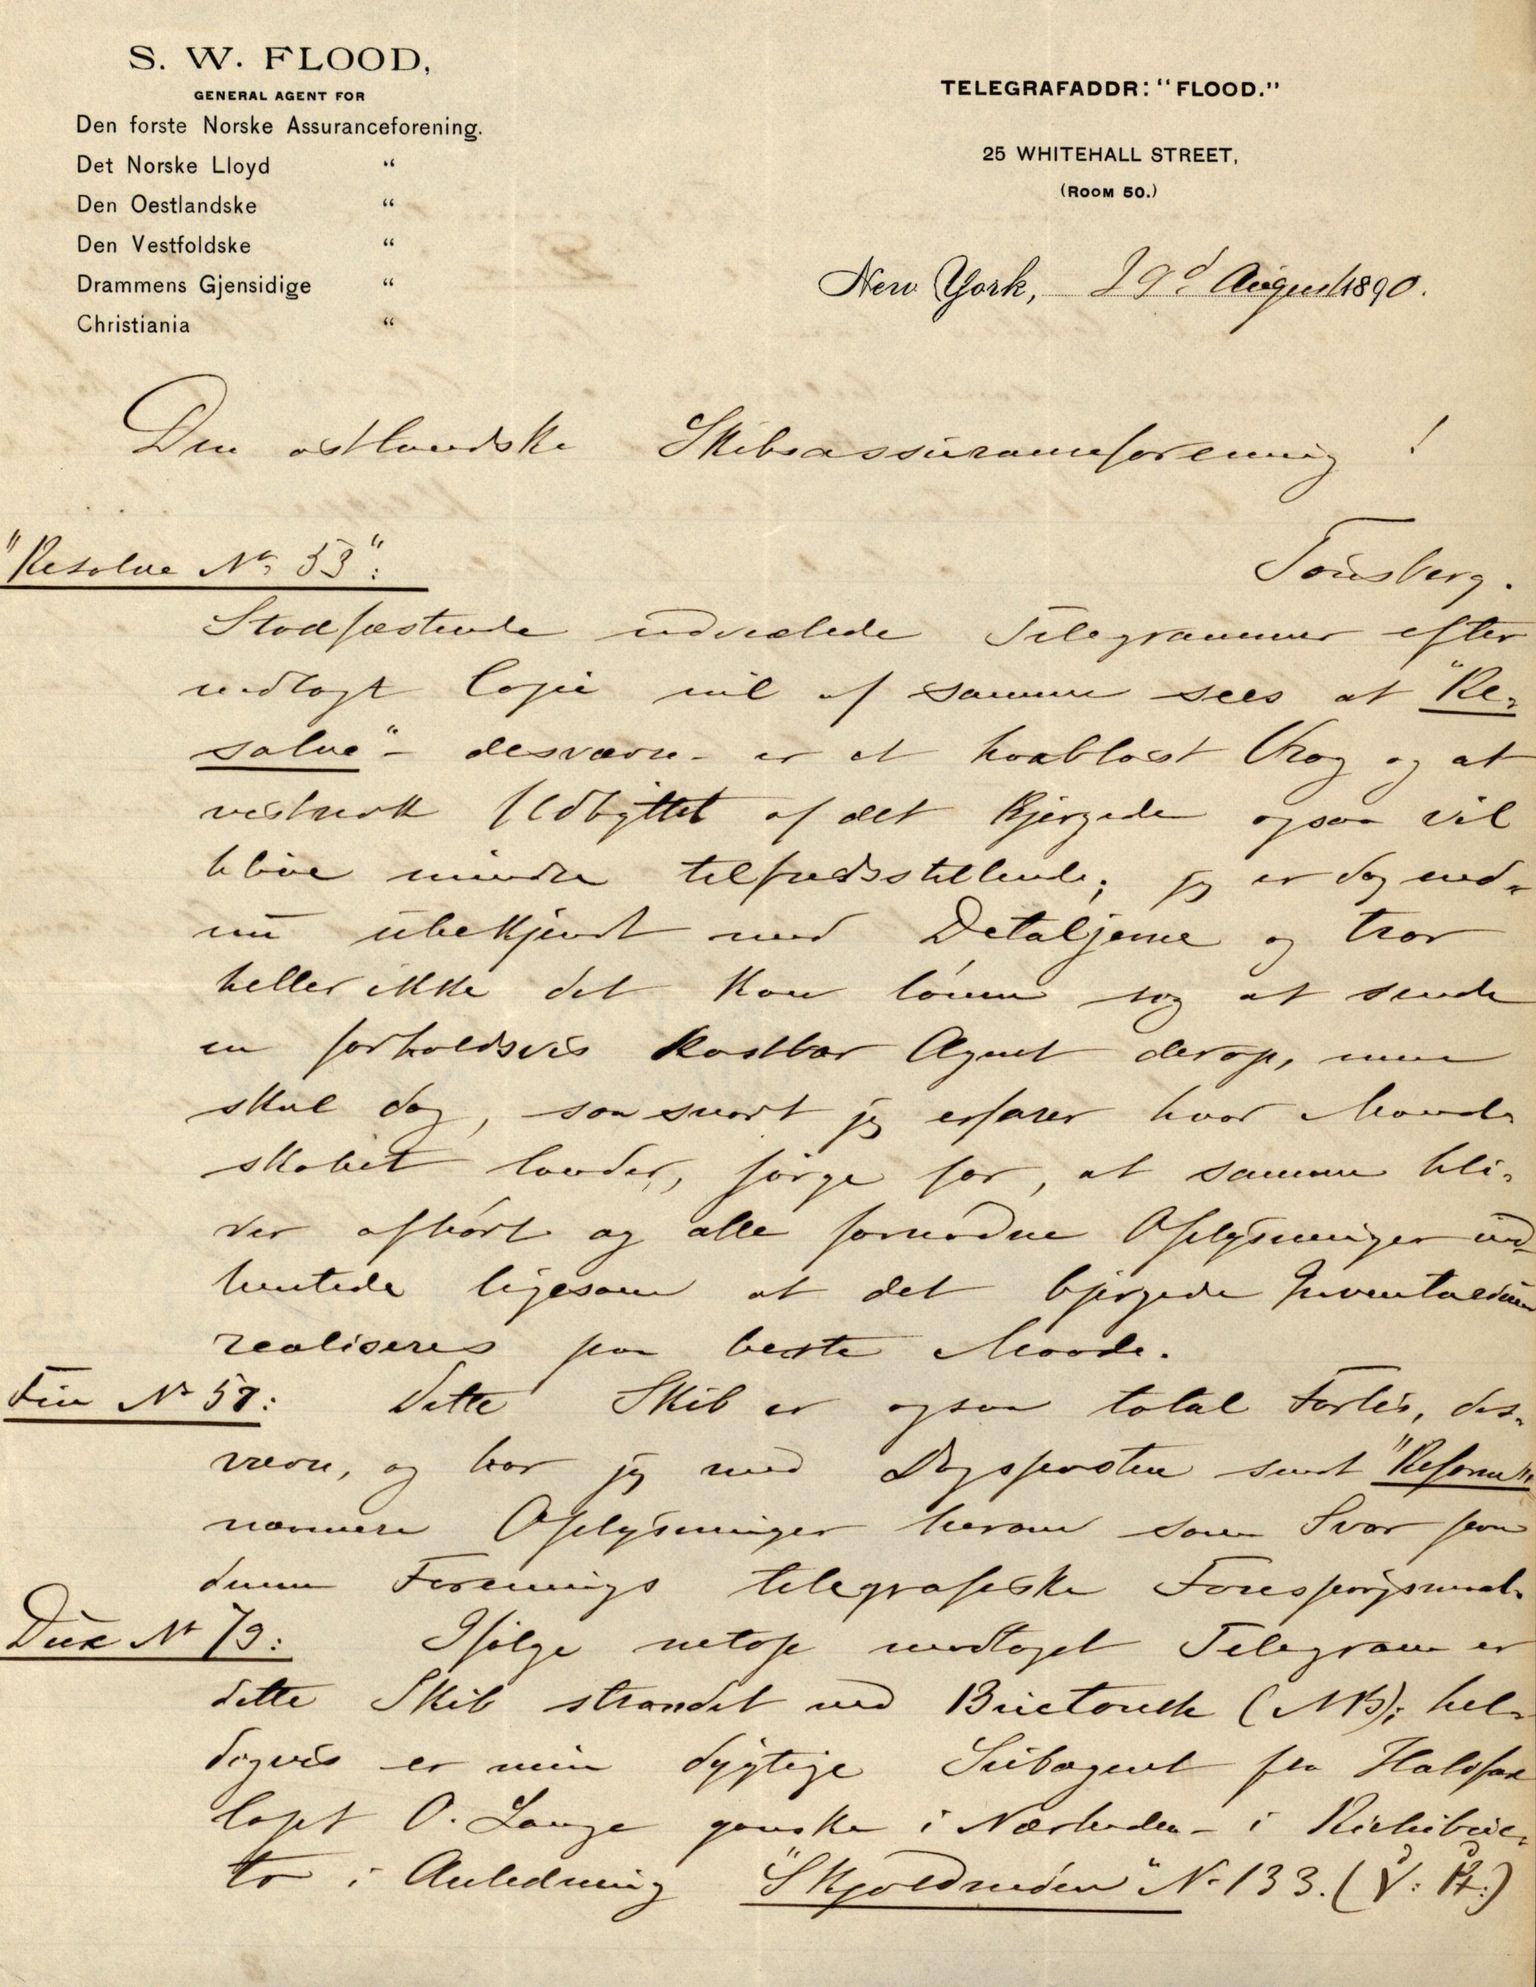 S. W. FLOOD,
GENERAL AGENT FOR
Den forste Norske Assuranceforening.
Det Norske Lloyd “
Den Oestlandske “
Den Vestfoldske “
Drammens Gjensidige “
Christiania “
TELEGRAFADDR: “FLOOD.”
25 WHITEHALL STREET,
(ROOM 50.)
New York, 29d August 1890.
Den østlandske Skibsassuranceforening!
Tönsberg.
"Resolve No 53":
Stadfæstende udvexlede Telegrammer efter
vedlagt Copie vil af samme sees at "Re-
solve" - desværre - er et haabløst Vrag og at
Udbyttet af det Bjergede ogsaa vil
blive mindre tilfredsstillende; jeg er dog end-
nu ubekjendt med Detaljerne og tror
heller ikke det kan lönne sig at sende
en forholdsvis kostbar Agent derop, men
skal dog, saasnart jeg erfarer hvor Mand-
skabet lander, sörge for, at samme bli-
ver afhört og alle fornödne Oplysninger ind-
hentede ligesom at det bjergede Inventarium
realiseres paa beste Maade.
Fin No 57: Dette Skib er ogsaa total Forlis, des-
værre, og har jeg med Dagsposten sendt "Reform"
nærmere Oplysninger herom som Svar paa
denne Forenings telegrafiske Forespörgsmaal.
Dux No 79: Ifölge netop modtaget Telegram er
dette Skib strandet ved Buctouche (NB); hel-
digvis er min dygtige Subagent fra Halifax
Capt O. Lange ganske i Nærheden - i Richibuc-
to i Anledning "Skjoldmöen" No 133.